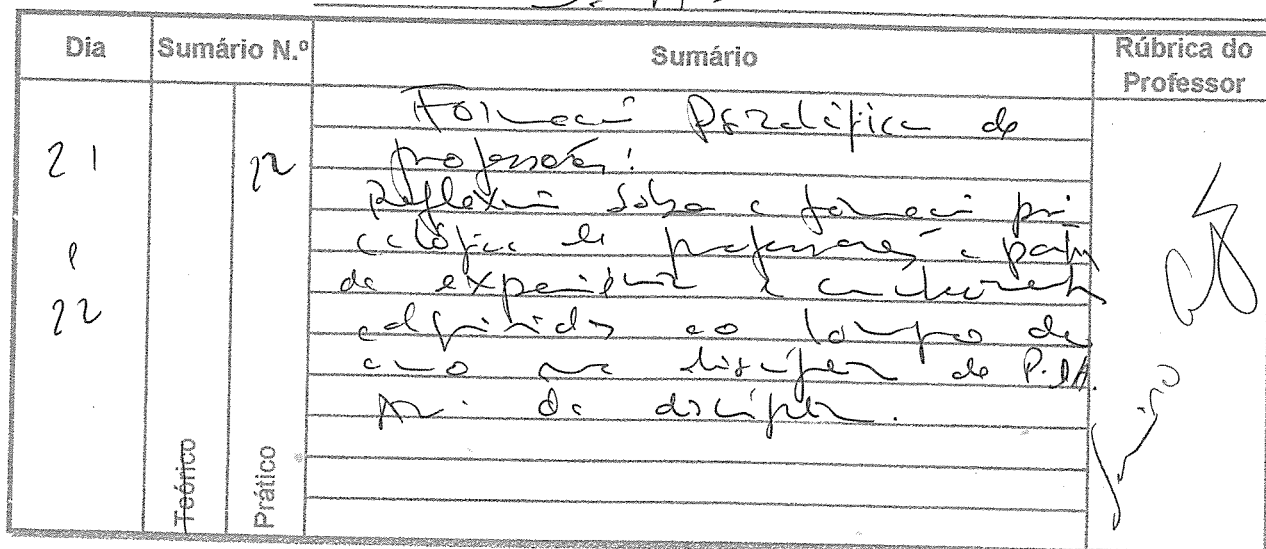 Dia Sumário N.º Sumário Rúbrica do Professor
Teórico Prático
21 e 22
22
Formação Psicológica de
professores:
Reflexão sobre a formação psi
cológica de professores, a partir
da experiência e conhecimentos
adquiridos ao longo do
ano na disciplina de P.DA.
da disciplina.